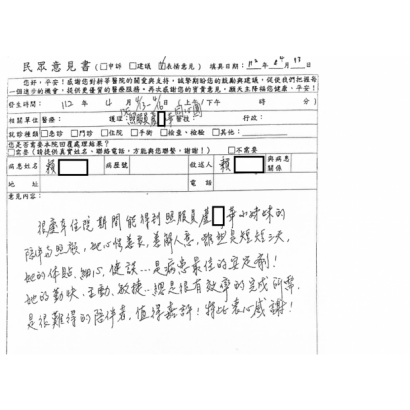 民眾意見書(□申訴 □建議 ☑表揚意見) 填具日期:112年04月13日
您好,平安!感謝您對新華醫院的關愛與支持,誠摯期盼您的鼓勵與建議,促使我們把握每
一個進步的機會,提供更優質的醫療服務,再次感謝您的寶貴意見,願天主降福您健康、平安!
發生時間: 112年 4月 (上午/下午 時 分)
相關單位 醫療: 護理: 醫技: 行政:
就診種類 □急診 □門診 □住院 □手術 □檢查、檢驗 □其他:
您是否需要本院回覆處理結果?
□需要(請提供真實姓名、聯絡電話,方能與您聯繫,謝謝!) □不需要
病患姓名 賴 病歷號 敘述人 賴 與病患關係
地址 電話
意見內容:
很慶幸住院期間能得到照服員盧 華小姊妹的
陪伴與照顧,她心性善良,善解人意,雖然是短短三天,
她的体貼、細心、健談…是病患最佳的安定劑!
她的勤快、主動、敏捷…總是很有效率的完成所需,
是很難得的陪伴者,值得嘉許!特此表心感謝!